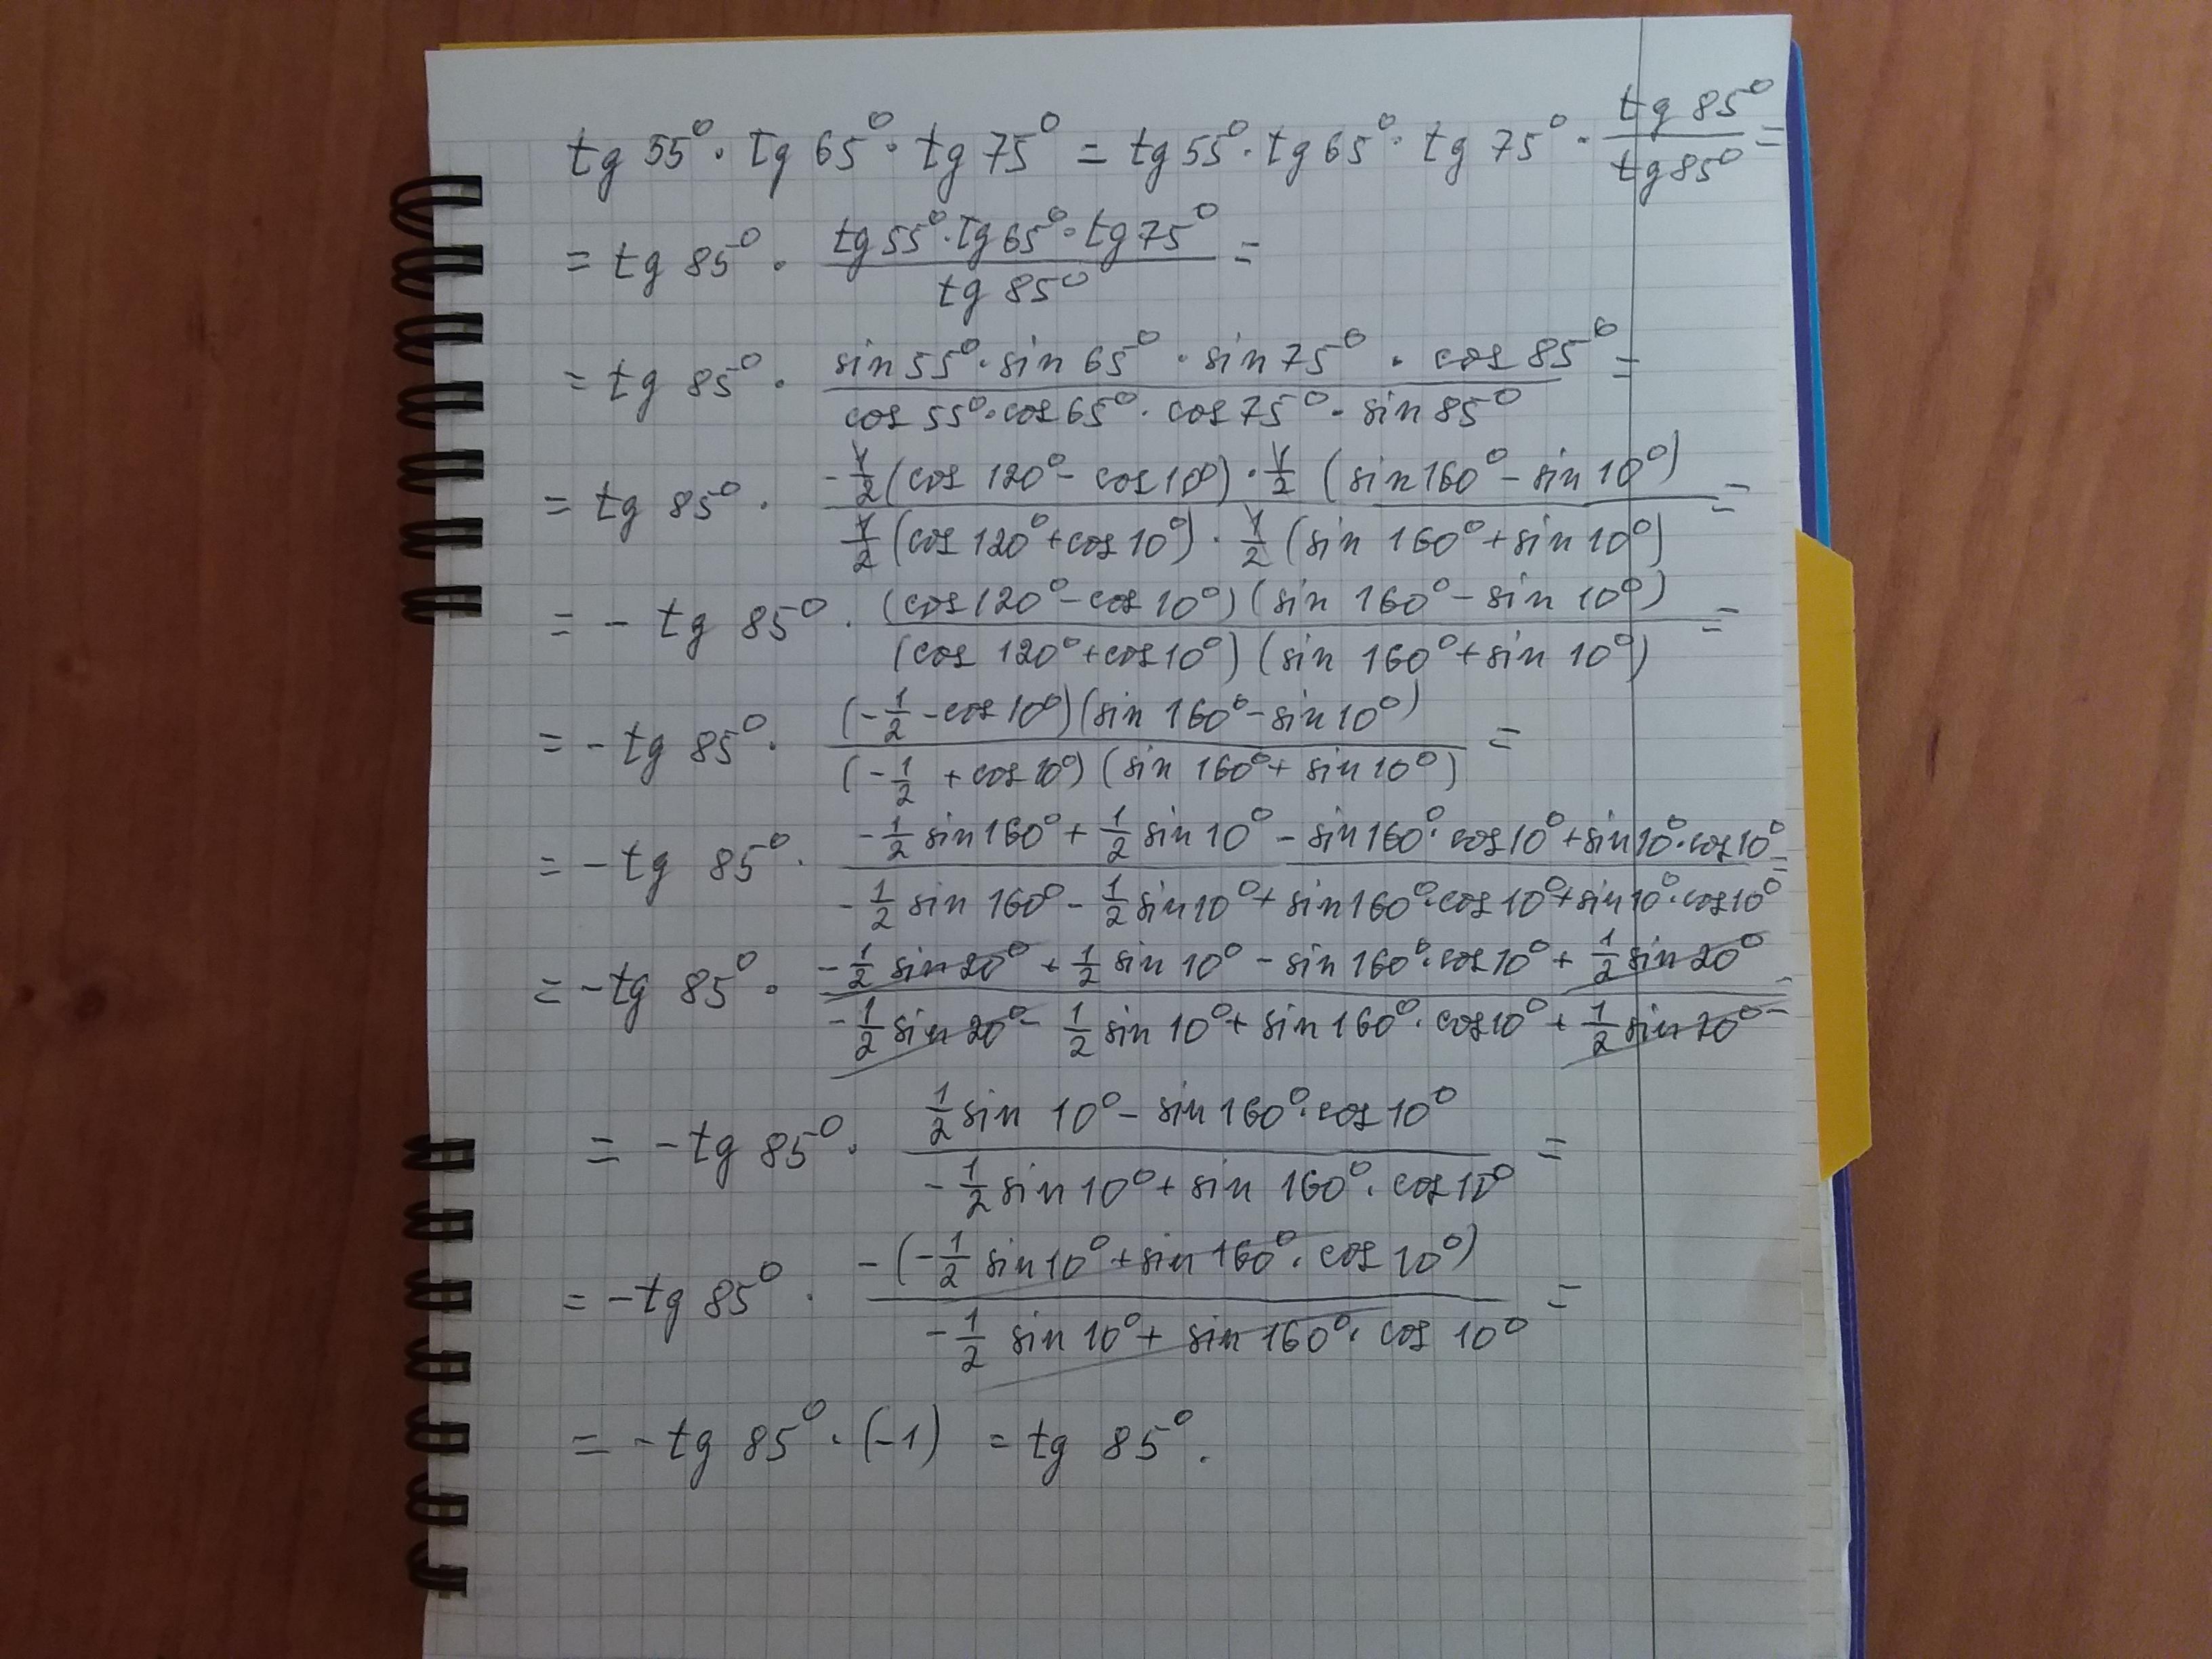 tg 55° · tg 65° · tg 75° = tg 55° · tg 65° · tg 75° · \frac{tg 85°}{tg 85°} =
= tg 85° · \frac{tg 55° · tg 65° · tg 75°}{tg 85°} =
= tg 85° · \frac{sin 55° · sin 65° · sin 75° · cos 85°}{cos 55° · cos 65° · cos 75° · sin 85°} =
= tg 85° · \frac{-\frac{1}{2}(cos 120° - cos 10°) · \frac{1}{2}(sin 160° - sin 10°)}{\frac{1}{2}(cos 120° + cos 10°) · \frac{1}{2}(sin 160° + sin 10°)} =
= - tg 85° · \frac{(cos 120° - cos 10°)(sin 160° - sin 10°)}{(cos 120° + cos 10°)(sin 160° + sin 10°)} =
= - tg 85° · \frac{(-\frac{1}{2} - cos 10°)(sin 160° - sin 10°)}{(-\frac{1}{2} + cos 10°)(sin 160° + sin 10°)} =
= - tg 85° · \frac{-\frac{1}{2} sin 160° + \frac{1}{2} sin 10° - sin 160° · cos 10° + sin 10° · cos 10°}{-\frac{1}{2} sin 160° - \frac{1}{2} sin 10° + sin 160° · cos 10° + sin 10° · cos 10°} =
= - tg 85° · \frac{-\frac{1}{2} sin 20° + \frac{1}{2} sin 10° - sin 160° · cos 10° + \frac{1}{2} sin 20°}{-\frac{1}{2} sin 20° - \frac{1}{2} sin 10° + sin 160° · cos 10° + \frac{1}{2} sin 20°} =
= - tg 85° · \frac{\frac{1}{2} sin 10° - sin 160° · cos 10°}{-\frac{1}{2} sin 10° + sin 160° · cos 10°} =
= - tg 85° · \frac{-(-\frac{1}{2} sin 10° + sin 160° · cos 10°)}{-\frac{1}{2} sin 10° + sin 160° · cos 10°} =
= - tg 85° · (-1) = tg 85°.